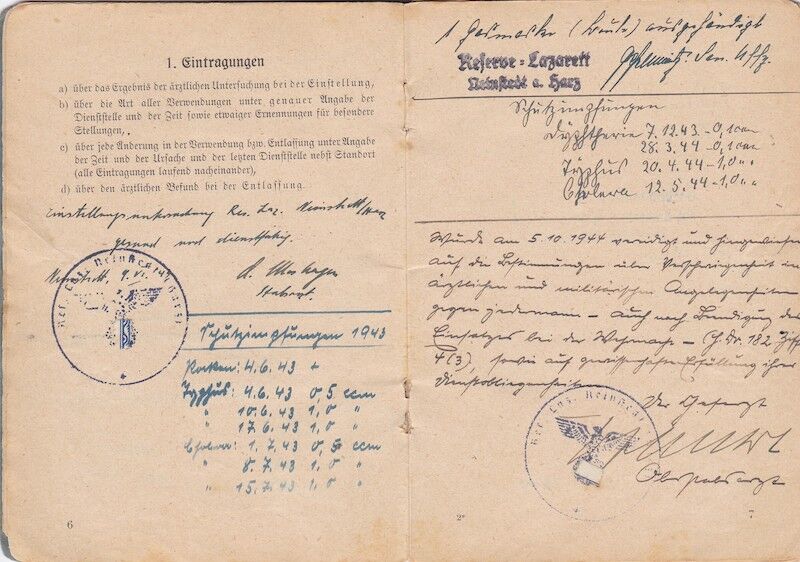 1. Eintragungen
a) über das Ergebnis der ärztlichen Untersuchung bei der Einstellung,
b) über die Art aller Verwendungen unter genauer Angabe der
Dienststelle und der Zeit sowie etwaiger Ernennungen für besondere
Stellungen,
c) über jede Änderung in der Verwendung bzw. Entlassung unter Angabe
der Zeit und der Ursache und der letzten Dienststelle nebst Standort
(alle Eintragungen laufend nacheinander),
d) über den ärztlichen Befund bei der Entlassung.
Einstellungsuntersuchung Res. Laz. Neinstedt/Harz
gesund und dienstfähig.
Neinstedt,
Stabarzt.
Res. Laz. Neinstedt Harz
Schutzimpfungen 1943
Pocken: 4.6.43 +
Typhus: 4.6.43 0,5 ccm
" 10.6.43 1,0 "
" 17.6.43 1,0 "
Cholera: 1.7.43 0,5 ccm
" 8.7.43 1,0 "
" 15.7.43 1,0 "
6
1 Gasmaske (Leute) ausgehändigt
Reserve-Lazarett
Neinstedt a. Harz
San. Uffz.
Schutzimpfungen
Dyphtherie 7.12.43 - 0,1 ccm
28.3.44 - 0,1 ccm
Typhus 20.4.44 - 1,0 " "
Cholera 12.5.44 - 1,0 " "
Wurde am 5.10.1944 vereidigt und hingewiesen
auf die Bestimmungen über Verschwiegenheit in
ärztlichen und militärischen Angelegenheiten
gegen jedermann - auch nach Beendigung des
Einsatzes bei der Wehrmacht - (H. Dv. 182 Ziff.
4(3), sowie auf gewissenhafte Erfüllung ihrer
Dienstobliegenheiten
Der Chefarzt
Res. Laz. Neinstedt
Oberstabsarzt
2*
7